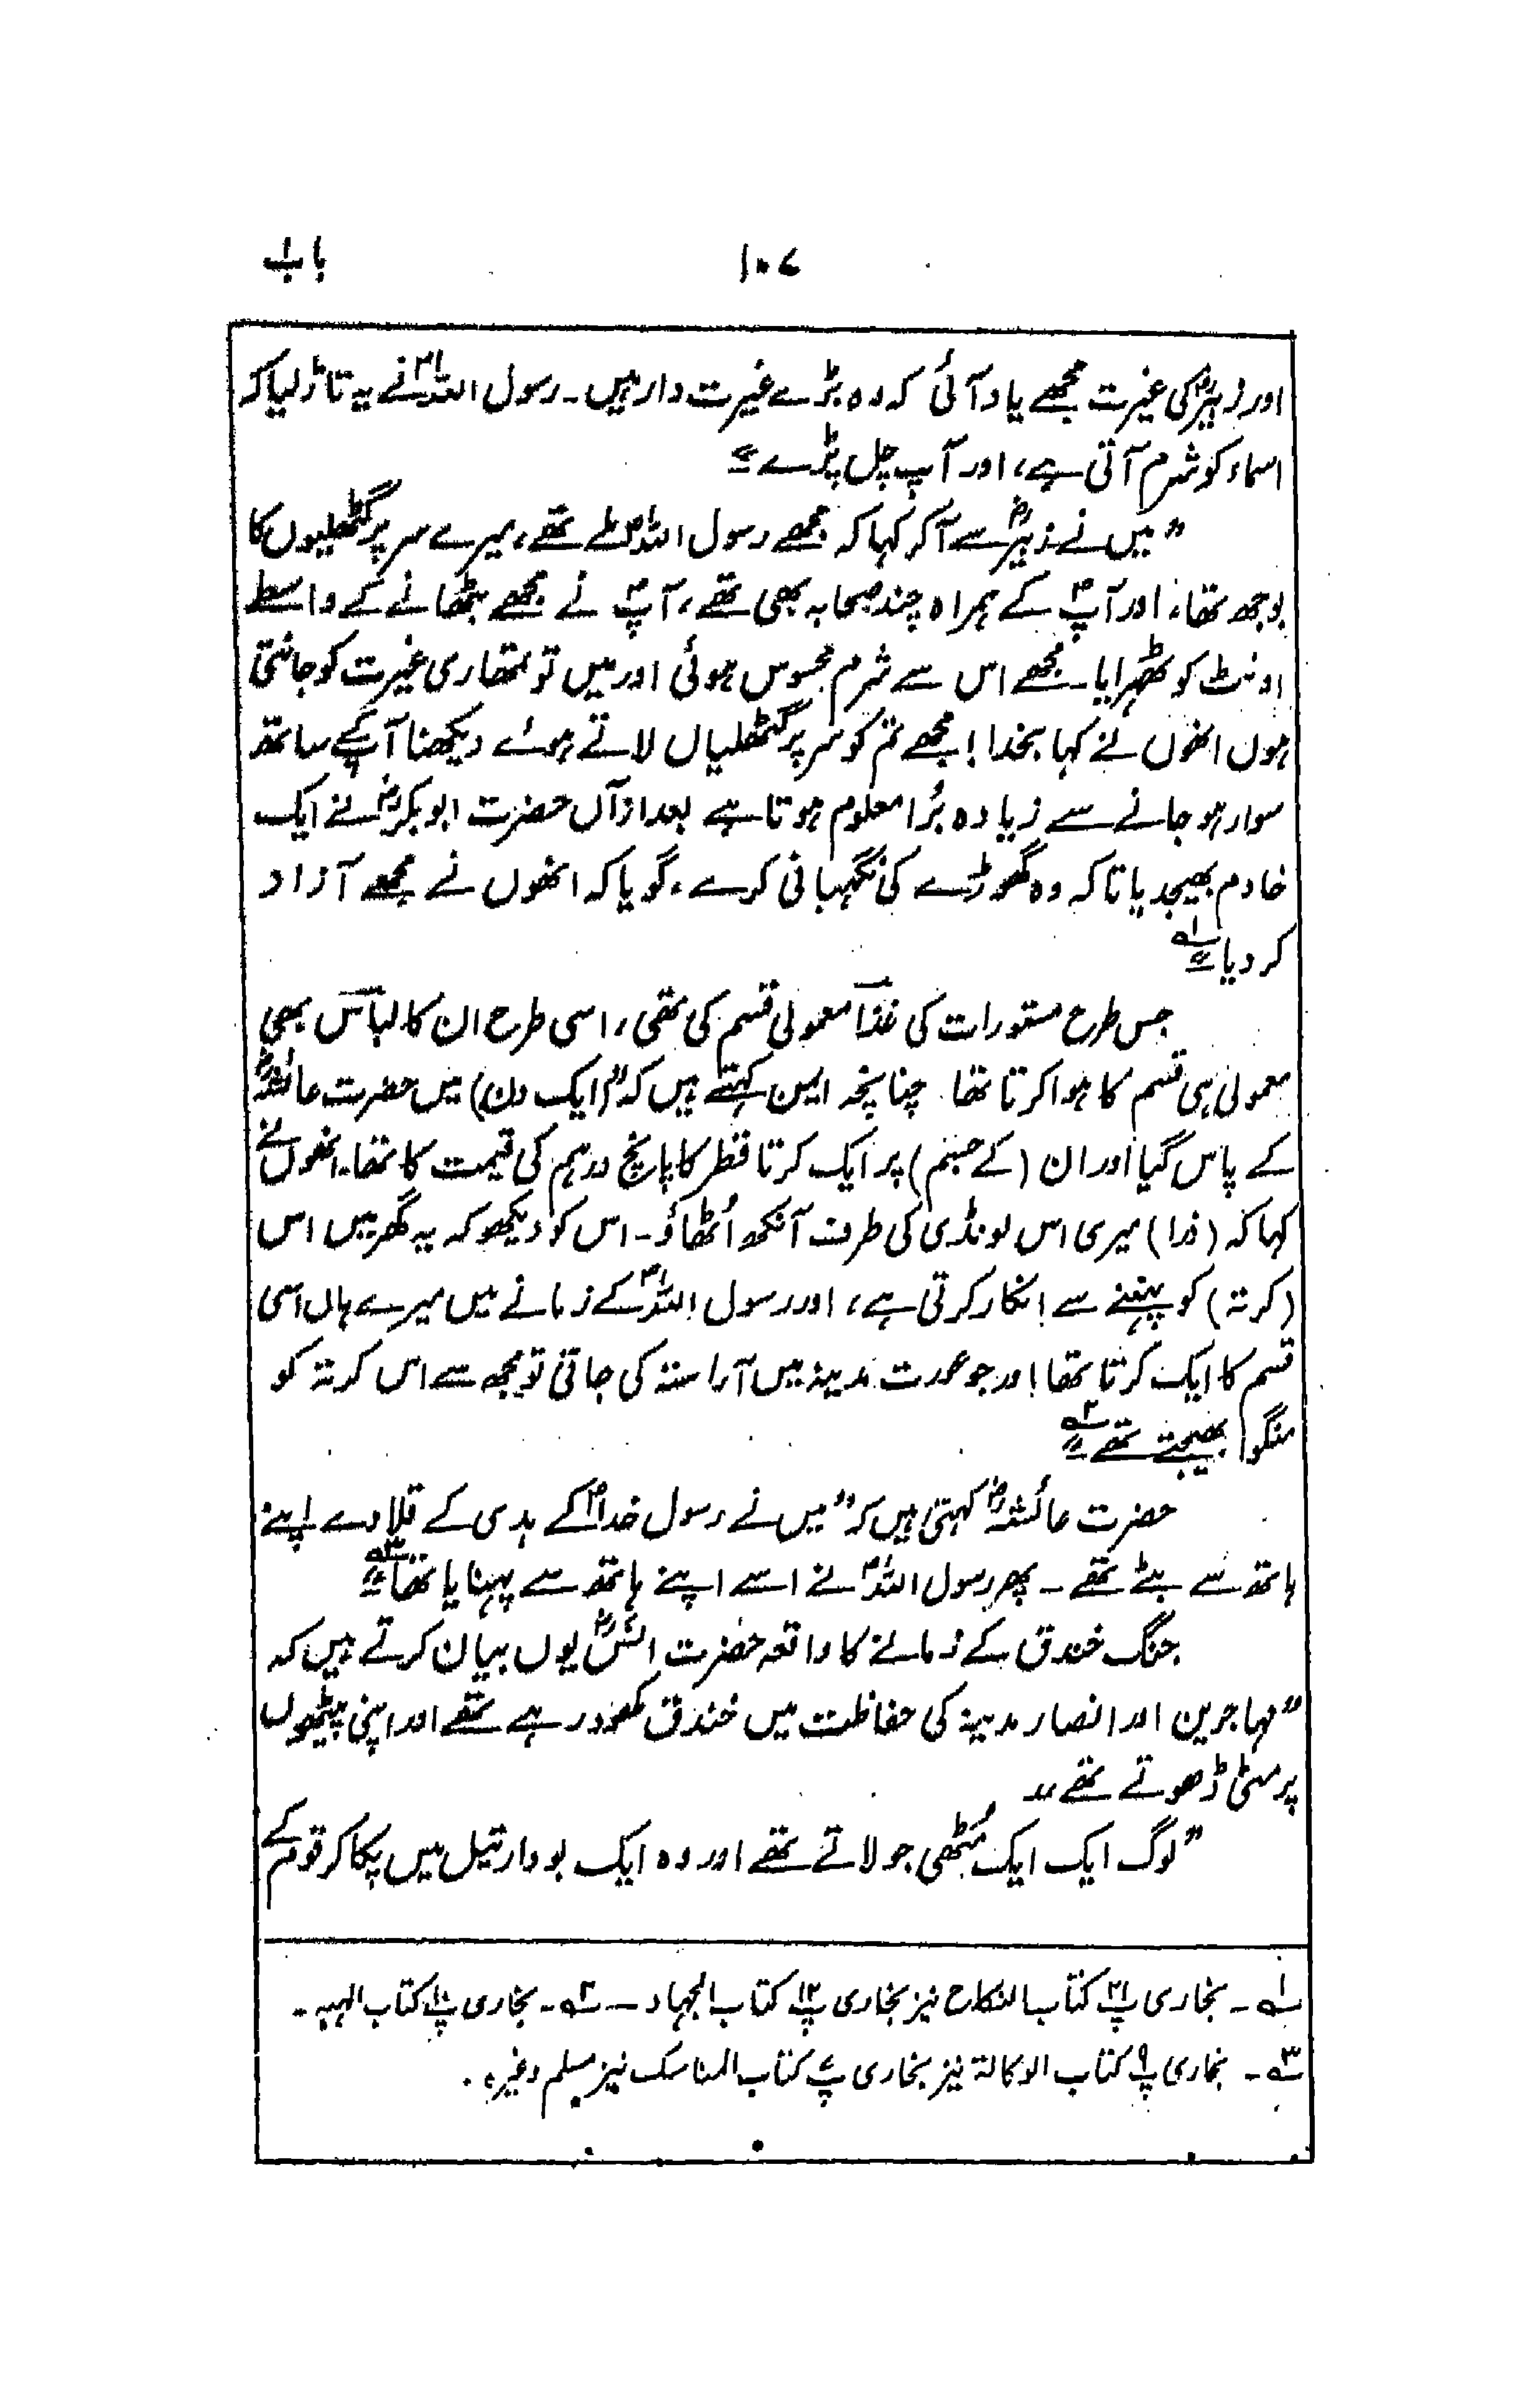 ۱۰۷ باب
اور زبیرؓ کی غیرت مجھے یاد آئی کہ وہ بڑے غیرت دار ہیں۔ رسول اللہؐ نے یہ تاڑ لیا کہ
اسماء کو شرم آتی ہے، اور آپ چل پڑے "
" میں نے زبیرؓ سے آکر کہا کہ مجھے رسول اللہؐ ملے تھے، میرے سر پر گٹھلیوں کا
بوجھ تھا، اور آپؐ کے ہمراہ چند صحابہ بھی تھے، آپؐ نے مجھے بٹھانے کے واسطے
اونٹ کو ٹھہرایا۔ مجھے اس سے شرم محسوس ہوئی اور میں تو تمھاری غیرت کو جانتی
ہوں انھوں نے کہا بخدا! مجھے تم کو سر پر گٹھلیاں لاتے ہوئے دیکھنا آپؐ کے ساتھ
سوار ہو جانے سے زیادہ بُرا معلوم ہوتا ہے بعد ازآں حضرت ابوبکرؓ نے ایک
خادم بھیجدیا تاکہ وہ گھوڑے کی نگہبانی کرے، گویا کہ انھوں نے مجھے آزاد
کر دیا "۱؎
جس طرح مستورات کی غذا معمولی قسم کی تھی، اسی طرح ان کا لباس بھی
معمولی ہی قسم کا ہوا کرتا تھا۔ چنانچہ ایمن کہتے ہیں کہ "(ایک دن) میں حضرت عائشہؓ
کے پاس گیا اور ان (کے جسم) پر ایک کرتا قطر کا پانچ درہم کی قیمت کا تھا۔ انھوں نے
کہا کہ (ذرا) میری اس لونڈی کی طرف آنکھ اُٹھاؤ۔ اس کو دیکھو کہ یہ گھر میں اس
(کرتہ) کو پہننے سے انکار کرتی ہے، اور رسول اللہؐ کے زمانے میں میرے ہاں اسی
قسم کا ایک کرتا تھا اور جو عورت مدینہ میں آراستہ کی جاتی تو مجھ سے اس کرتہ کو
منگوا بھیجتے تھے "۲؎
حضرت عائشہؓ کہتی ہیں کہ " میں نے رسول خداؐ کے ہدی کے قلادے اپنے
ہاتھ سے بٹے تھے ۔ پھر رسول اللہؐ نے اسے اپنے ہاتھ سے پہنایا تھا "۳؎
جنگ خندق کے زمانے کا واقعہ حضرت انسؓ یوں بیان کرتے ہیں کہ
" مہاجرین اور انصار مدینہ کی حفاظت میں خندق کھود رہے تھے اور اپنی پیٹھوں
پر مٹی ڈھوتے تھے "
" لوگ ایک ایک مُٹھی جو لاتے تھے اور وہ ایک بودار تیل میں پکا کر قوم کے
۱؎۔ بخاری پ۲۱ کتاب النکاح نیز بخاری پ۱۲ کتاب الجہاد ۔ ۲؎۔ بخاری پ۱۰ کتاب الہبہ ۔
۳؎۔ بخاری پ۹ کتاب الوکالۃ نیز بخاری پ۷ کتاب المناسک نیز مسلم وغیرہ۔